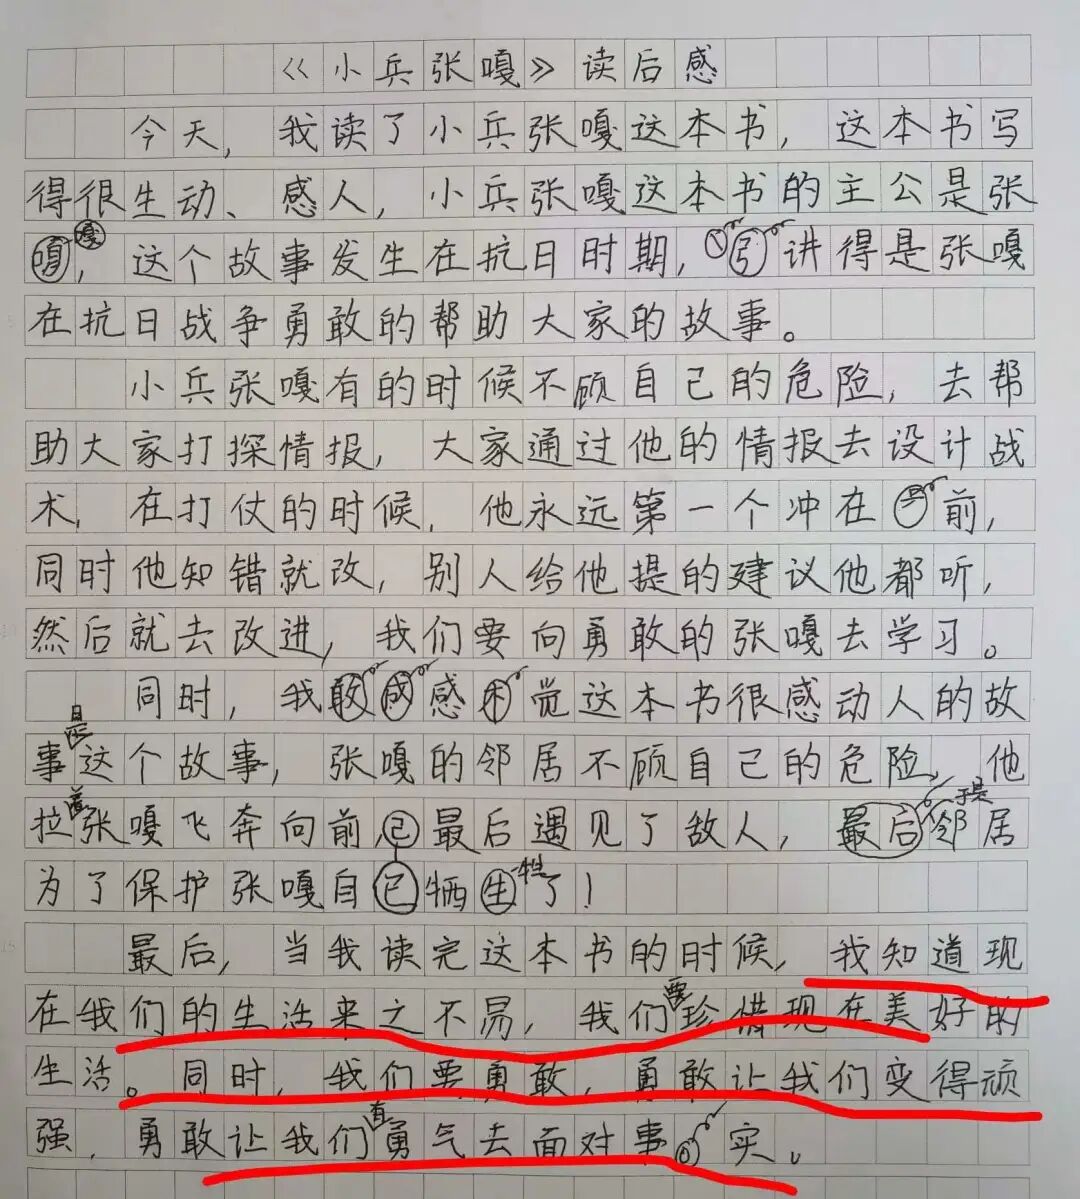 《小兵张嘎》读后感
今天，我读了小兵张嘎这本书，这本书写
得很生动、感人，小兵张嘎这本书的主公是张
嘎，这个故事发生在抗日时期，讲得是张嘎
在抗日战争勇敢的帮助大家的故事。
小兵张嘎有的时候不顾自己的危险，去帮
助大家打探情报，大家通过他的情报去设计战
术，在打仗的时候，他永远第一个冲在前，
同时他知错就改，别人给他提的建议他都听，
然后就去改进，我们要向勇敢的张嘎去学习。
同时，我感觉这本书很感动人的故
事是这个故事，张嘎的邻居不顾自己的危险，他
拉着张嘎飞奔向前，最后遇见了敌人，于是邻居
为了保护张嘎自己牺牲了！
最后，当我读完这本书的时候，我知道现
在我们的生活来之不易，我们要珍惜现在美好的
生活。同时，我们要勇敢，勇敢让我们变得顽
强，勇敢让我们有勇气去面对事实。